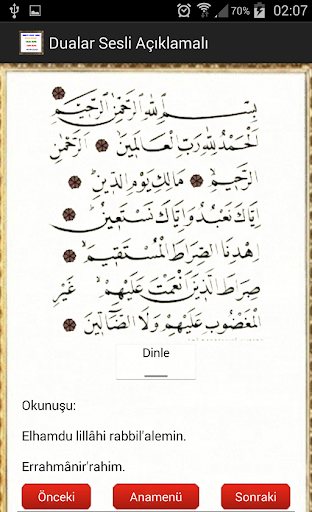 70% 02:07
Dualar Sesli Açıklamalı
بِسْمِ اللهِ الرَّحْمٰنِ الرَّحِيمِ
اَلْحَمْدُ لِلّٰهِ رَبِّ الْعَالَمِينَ اَلرَّحْمٰنِ
الرَّحِيمِ مَالِكِ يَوْمِ الدِّينِ
اِيَّاكَ نَعْبُدُ وَاِيَّاكَ نَسْتَعِينُ
اِهْدِنَا الصِّرَاطَ الْمُسْتَقِيمَ
صِرَاطَ الَّذِينَ اَنْعَمْتَ عَلَيْهِمْ غَيْرِ
الْمَغْضُوبِ عَلَيْهِمْ وَلَا الضَّالِّينَ
Dinle
Okunuşu:
Elhamdu lillâhi rabbil'alemin.
Errahmânir'rahim.
Önceki Anamenü Sonraki